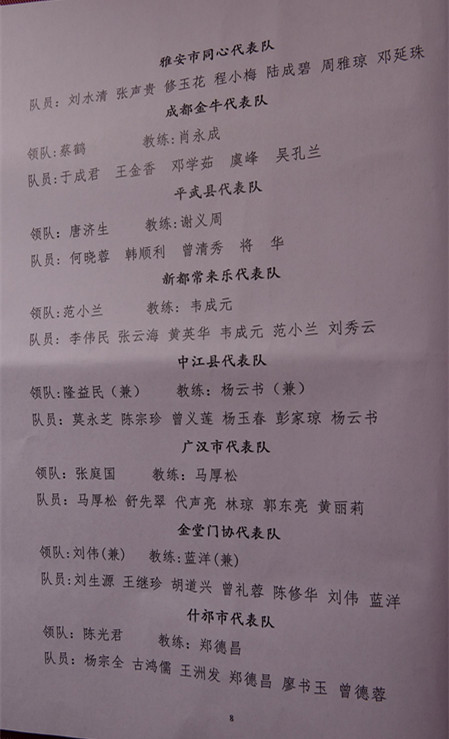 雅安市同心代表队
队员：刘水清 张声贵 修玉花 程小梅 陆成碧 周雅琼 邓延珠
成都金牛代表队
领队:蔡鹤 教练:肖永成
队员:于成君 王金香 邓学茹 虞峰 吴孔兰
平武县代表队
领队：唐济生 教练:谢义周
队员：何晓蓉 韩顺利 曾清秀 将 华
新都常来乐代表队
领队:范小兰 教练：韦成元
队员：李伟民 张云海 黄英华 韦成元 范小兰 刘秀云
中江县代表队
领队:隆益民（兼） 教练：杨云书（兼）
队员：莫永芝 陈宗珍 曾义莲 杨玉春 彭家琼 杨云书
广汉市代表队
领队：张庭国 教练：马厚松
队员：马厚松 舒先翠 代声亮 林琼 郭东亮 黄丽莉
金堂门协代表队
领队:刘伟(兼) 教练:蓝洋(兼)
队员:刘生源 王继珍 胡道兴 曾礼蓉 陈修华 刘伟 蓝洋
什邡市代表队
领队：陈光君 教练：郑德昌
队员：杨宗全 古鸿儒 王洲发 郑德昌 廖书玉 曾德蓉
8